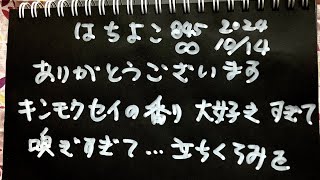 はちよこ 845 2024
∞ 10/14
ありがとうございます
キンモクセイの香り 大好きすぎて
嗅ぎすぎて…立ちくらみを